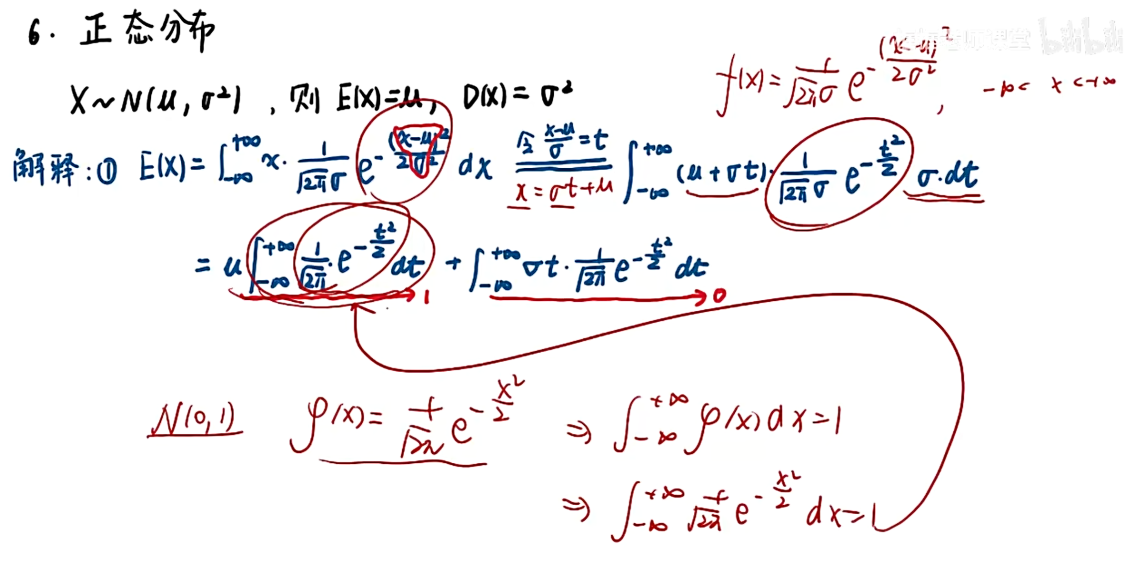 6. 正态分布
X~N(μ, σ²), 则 E(X)=μ, D(X)=σ²
f(x)=\frac{1}{\sqrt{2π}σ} e^{-\frac{(x-μ)²}{2σ²}}, -∞< x <+∞
解释:① E(X)=∫_{-∞}^{+∞} x·\frac{1}{\sqrt{2π}σ} e^{-\frac{(x-μ)²}{2σ²}} dx \xlongequal[x=σt+μ]{令 \frac{x-μ}{σ}=t} ∫_{-∞}^{+∞} (μ+σt)·\frac{1}{\sqrt{2π}σ} e^{-\frac{t²}{2}} σ·dt
= μ∫_{-∞}^{+∞} \frac{1}{\sqrt{2π}}·e^{-\frac{t²}{2}} dt + ∫_{-∞}^{+∞} σt·\frac{1}{\sqrt{2π}} e^{-\frac{t²}{2}} dt
1 0
N(0,1) φ(x)=\frac{1}{\sqrt{2π}} e^{-\frac{x²}{2}} ⇒ ∫_{-∞}^{+∞} φ(x)dx=1
⇒ ∫_{-∞}^{+∞} \frac{1}{\sqrt{2π}} e^{-\frac{x²}{2}} dx=1
bilibili